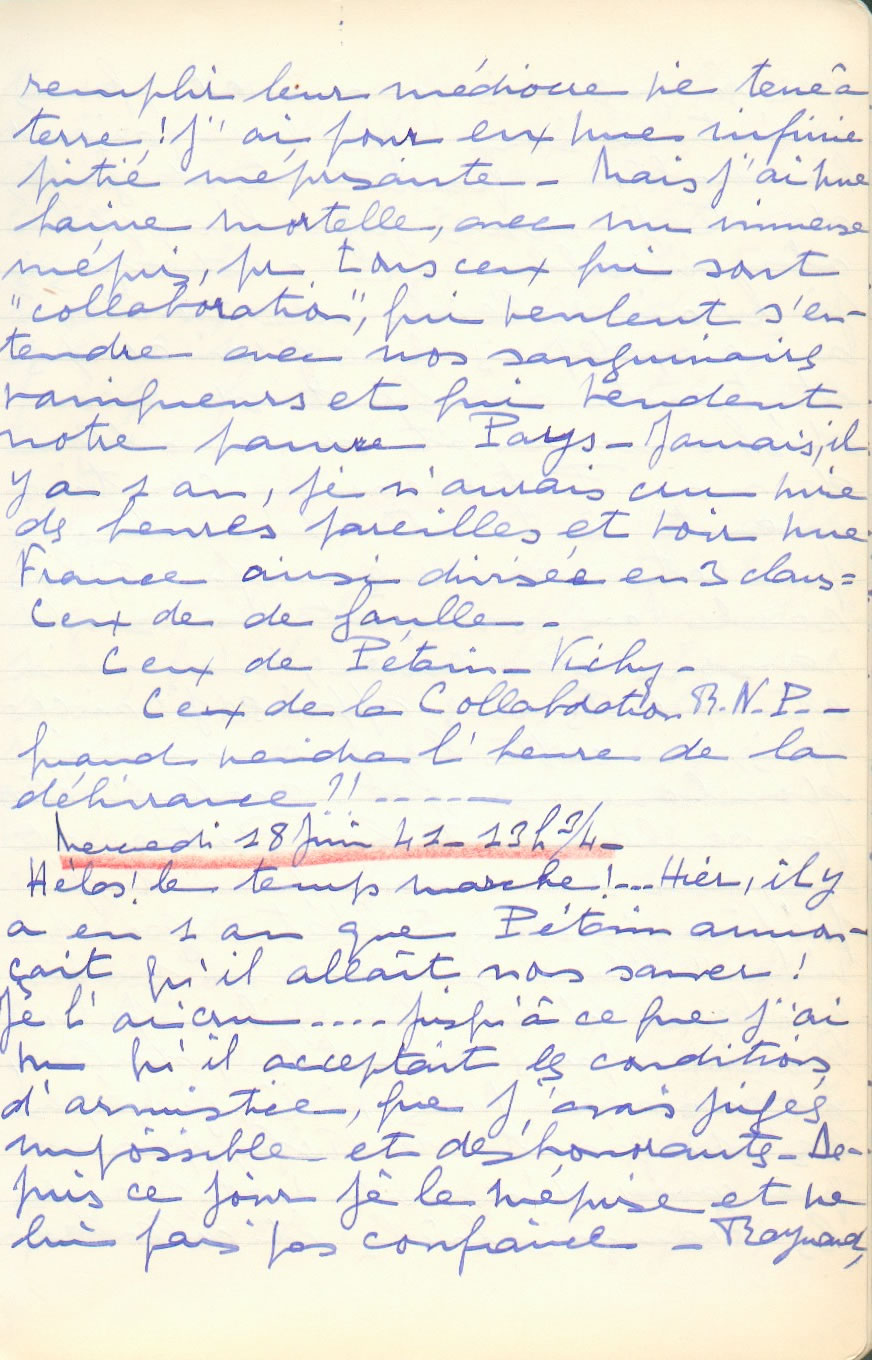 remplir leur médiocre vie terre à
terre ! J'ai pour eux une infinie
pitié méprisante - Mais j'ai une
haine mortelle, avec un immense
mépris, pr tous ceux qui sont
"collaboration", qui veulent s'en-
tendre avec nos sanguinaires
vainqueurs et qui vendent
notre pauvre Pays - Jamais, il
y a 1 an, je n'aurais cru vivre
des heures pareilles et voir une
France ainsi divisée en 3 clans =
Ceux de de Gaulle -
Ceux de Pétain - Vichy -
Ceux de la Collaboration R.N.P. -
quand viendra l'heure de la
délivrance ?! -----
Mercredi 18 Juin 41 - 13h 3/4 -
Hélas ! le temps marche ! ... Hier, il y
a eu 1 an que Pétain annon-
çait qu'il allait nous sauver !
Je l'ai cru .... jusqu'à ce que j'ai
vu qu'il acceptait les conditions
d'armistice, que j'avais jugés
impossible et deshonorants - De-
puis ce jour je le méprise et ne
lui fais pas confiance - Raynaud,